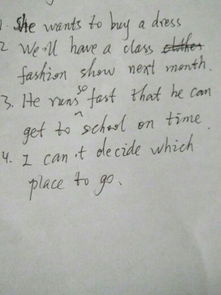 1. She wants to buy a dress
2 We'll have a class clothes
fashion show next month.
3. He runs so fast that he can
get to school on time
4. I can't decide which
place to go.